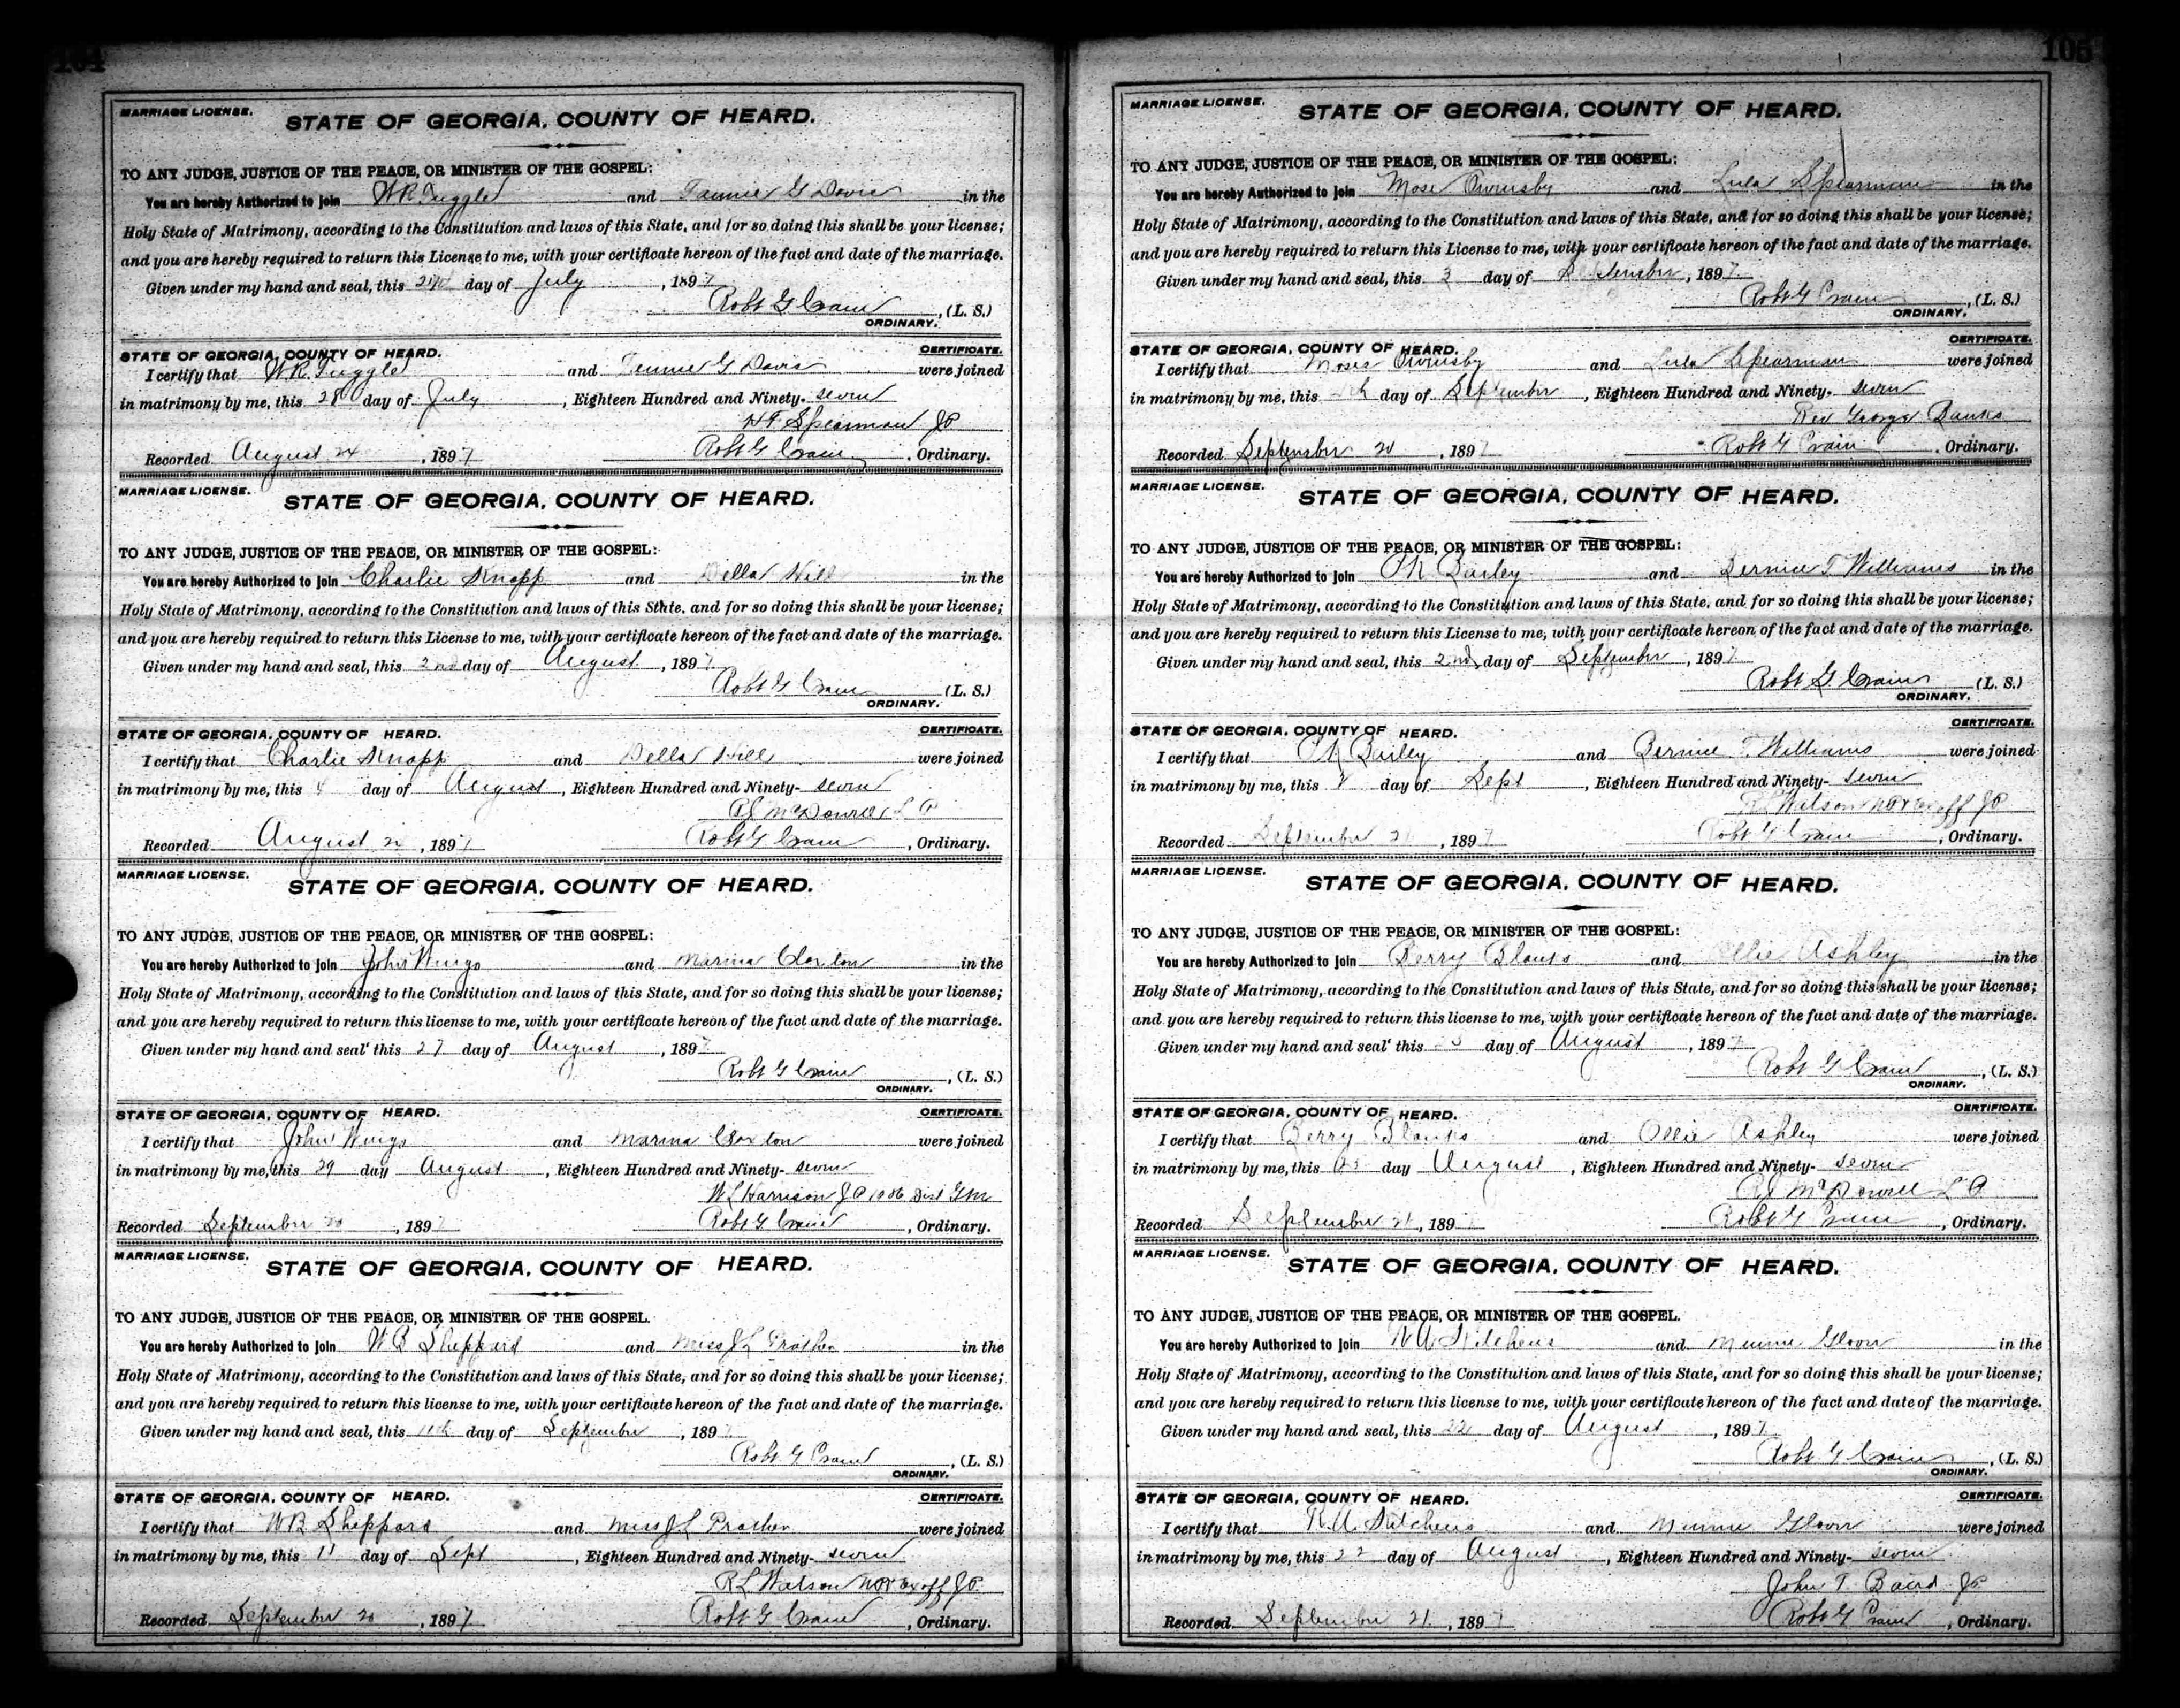 104
MARRIAGE LICENSE.
STATE OF GEORGIA, COUNTY OF HEARD.
TO ANY JUDGE, JUSTICE OF THE PEACE, OR MINISTER OF THE GOSPEL:
You are hereby Authorized to join W R Tuggle and G Davis in the
Holy State of Matrimony, according to the Constitution and laws of this State, and for so doing this shall be your license;
and you are hereby required to return this License to me, with your certificate hereon of the fact and date of the marriage.
Given under my hand and seal, this day of July, 1897
Robt G Crain, (L. S.)
ORDINARY.
STATE OF GEORGIA, COUNTY OF HEARD. CERTIFICATE.
I certify that W R Tuggle and G Davis were joined
in matrimony by me, this 28 day of July, Eighteen Hundred and Ninety- seven
H F Spearman JP
Recorded August 24, 1897 Robt G Crain, Ordinary.
MARRIAGE LICENSE.
STATE OF GEORGIA, COUNTY OF HEARD.
TO ANY JUDGE, JUSTICE OF THE PEACE, OR MINISTER OF THE GOSPEL:
You are hereby Authorized to join Charlie Knapp and Della Hill in the
Holy State of Matrimony, according to the Constitution and laws of this State, and for so doing this shall be your license;
and you are hereby required to return this License to me, with your certificate hereon of the fact and date of the marriage.
Given under my hand and seal, this 2nd day of August, 1897
Robt G Crain (L. S.)
ORDINARY.
STATE OF GEORGIA, COUNTY OF HEARD. CERTIFICATE.
I certify that Charlie Knapp and Della Hill were joined
in matrimony by me, this day of August, Eighteen Hundred and Ninety- seven
McDowell
Recorded August, 1897 Robt G Crain, Ordinary.
MARRIAGE LICENSE.
STATE OF GEORGIA, COUNTY OF HEARD.
TO ANY JUDGE, JUSTICE OF THE PEACE, OR MINISTER OF THE GOSPEL:
You are hereby Authorized to join John Wingo and Marina Claxton in the
Holy State of Matrimony, according to the Constitution and laws of this State, and for so doing this shall be your license;
and you are hereby required to return this license to me, with your certificate hereon of the fact and date of the marriage.
Given under my hand and seal' this 27 day of August, 1897
Robt G Crain, (L. S.)
ORDINARY.
STATE OF GEORGIA, COUNTY OF HEARD. CERTIFICATE.
I certify that John Wingo and Marina Claxton were joined
in matrimony by me, this 29 day August, Eighteen Hundred and Ninety- seven
W L Harrison JP Dist GM
Recorded September 20, 1897 Robt G Crain, Ordinary.
MARRIAGE LICENSE.
STATE OF GEORGIA, COUNTY OF HEARD.
TO ANY JUDGE, JUSTICE OF THE PEACE, OR MINISTER OF THE GOSPEL.
You are hereby Authorized to join W B Sheppard and Miss J L Prather in the
Holy State of Matrimony, according to the Constitution and laws of this State, and for so doing this shall be your license;
and you are hereby required to return this license to me, with your certificate hereon of the fact and date of the marriage.
Given under my hand and seal, this 11th day of September, 189
Robt G Crain, (L. S.)
ORDINARY.
STATE OF GEORGIA, COUNTY OF HEARD. CERTIFICATE.
I certify that W B Sheppard and Miss J L Prather were joined
in matrimony by me, this 11 day of Sept, Eighteen Hundred and Ninety- seven
R L Watson exoff JP
Recorded September 20, 1897 Robt G Crain, Ordinary.
105
MARRIAGE LICENSE.
STATE OF GEORGIA, COUNTY OF HEARD.
TO ANY JUDGE, JUSTICE OF THE PEACE, OR MINISTER OF THE GOSPEL:
You are hereby Authorized to join Mose Ormsby and Lula Spearman in the
Holy State of Matrimony, according to the Constitution and laws of this State, and for so doing this shall be your license;
and you are hereby required to return this License to me, with your certificate hereon of the fact and date of the marriage.
Given under my hand and seal, this 3 day of September, 1897
Robt G Crain, (L. S.)
ORDINARY.
STATE OF GEORGIA, COUNTY OF HEARD. CERTIFICATE.
I certify that Moses Ormsby and Lula Spearman were joined
in matrimony by me, this day of September, Eighteen Hundred and Ninety- seven
Rev George Banks
Recorded September 20, 1897 Robt G Crain, Ordinary.
MARRIAGE LICENSE.
STATE OF GEORGIA, COUNTY OF HEARD.
TO ANY JUDGE, JUSTICE OF THE PEACE, OR MINISTER OF THE GOSPEL:
You are hereby Authorized to join Bailey and Bernice T Williams in the
Holy State of Matrimony, according to the Constitution and laws of this State, and for so doing this shall be your license;
and you are hereby required to return this License to me, with your certificate hereon of the fact and date of the marriage.
Given under my hand and seal, this 2nd day of September, 1897
Robt G Crain (L. S.)
ORDINARY.
STATE OF GEORGIA, COUNTY OF HEARD. CERTIFICATE.
I certify that Bailey and Bernice T Williams were joined
in matrimony by me, this day of Sept, Eighteen Hundred and Ninety- seven
Watson exoff JP
Recorded September 21, 1897 Robt G Crain, Ordinary.
MARRIAGE LICENSE.
STATE OF GEORGIA, COUNTY OF HEARD.
TO ANY JUDGE, JUSTICE OF THE PEACE, OR MINISTER OF THE GOSPEL:
You are hereby Authorized to join Berry Blanks and Ollie Ashley in the
Holy State of Matrimony, according to the Constitution and laws of this State, and for so doing this shall be your license;
and you are hereby required to return this license to me, with your certificate hereon of the fact and date of the marriage.
Given under my hand and seal' this day of August, 1897
Robt G Crain, (L. S.)
ORDINARY.
STATE OF GEORGIA, COUNTY OF HEARD. CERTIFICATE.
I certify that Berry Blanks and Ollie Ashley were joined
in matrimony by me, this day August, Eighteen Hundred and Ninety- seven
McDowell
Recorded September 21, 189 Robt G Crain, Ordinary.
MARRIAGE LICENSE.
STATE OF GEORGIA, COUNTY OF HEARD.
TO ANY JUDGE, JUSTICE OF THE PEACE, OR MINISTER OF THE GOSPEL.
You are hereby Authorized to join Hitchens and Minnie Glover in the
Holy State of Matrimony, according to the Constitution and laws of this State, and for so doing this shall be your license;
and you are hereby required to return this license to me, with your certificate hereon of the fact and date of the marriage.
Given under my hand and seal, this 22 day of August, 1897
Robt G Crain, (L. S.)
ORDINARY.
STATE OF GEORGIA, COUNTY OF HEARD. CERTIFICATE.
I certify that and Minnie Glover were joined
in matrimony by me, this 22 day of August, Eighteen Hundred and Ninety- seven
John T Baird JP
Recorded September 21, 1897 Robt G Crain, Ordinary.